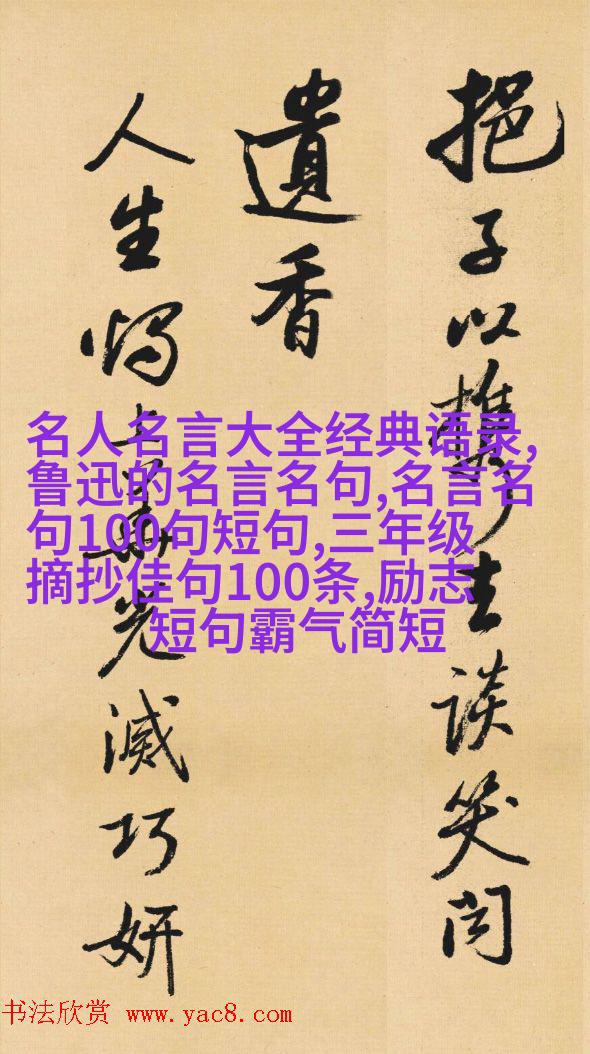 挹子以生談笑间
遺香
人生光滅巧妍
名人名言大全经典语录,
鲁迅的名言名句,名言名
句100句短句,三年级
摘抄佳句100条,励志
短句霸气简短
书法欣赏 www.yac8.com